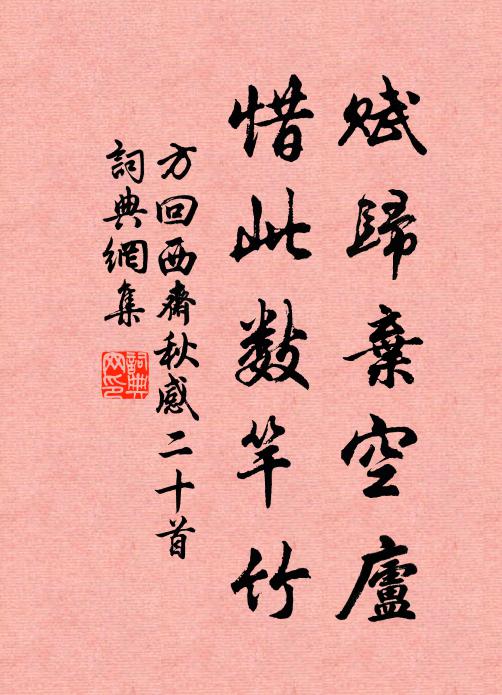 赋歸棄空廬
惜此数竿竹
方回西齋秋感二十首
詞典網集
詞典網印